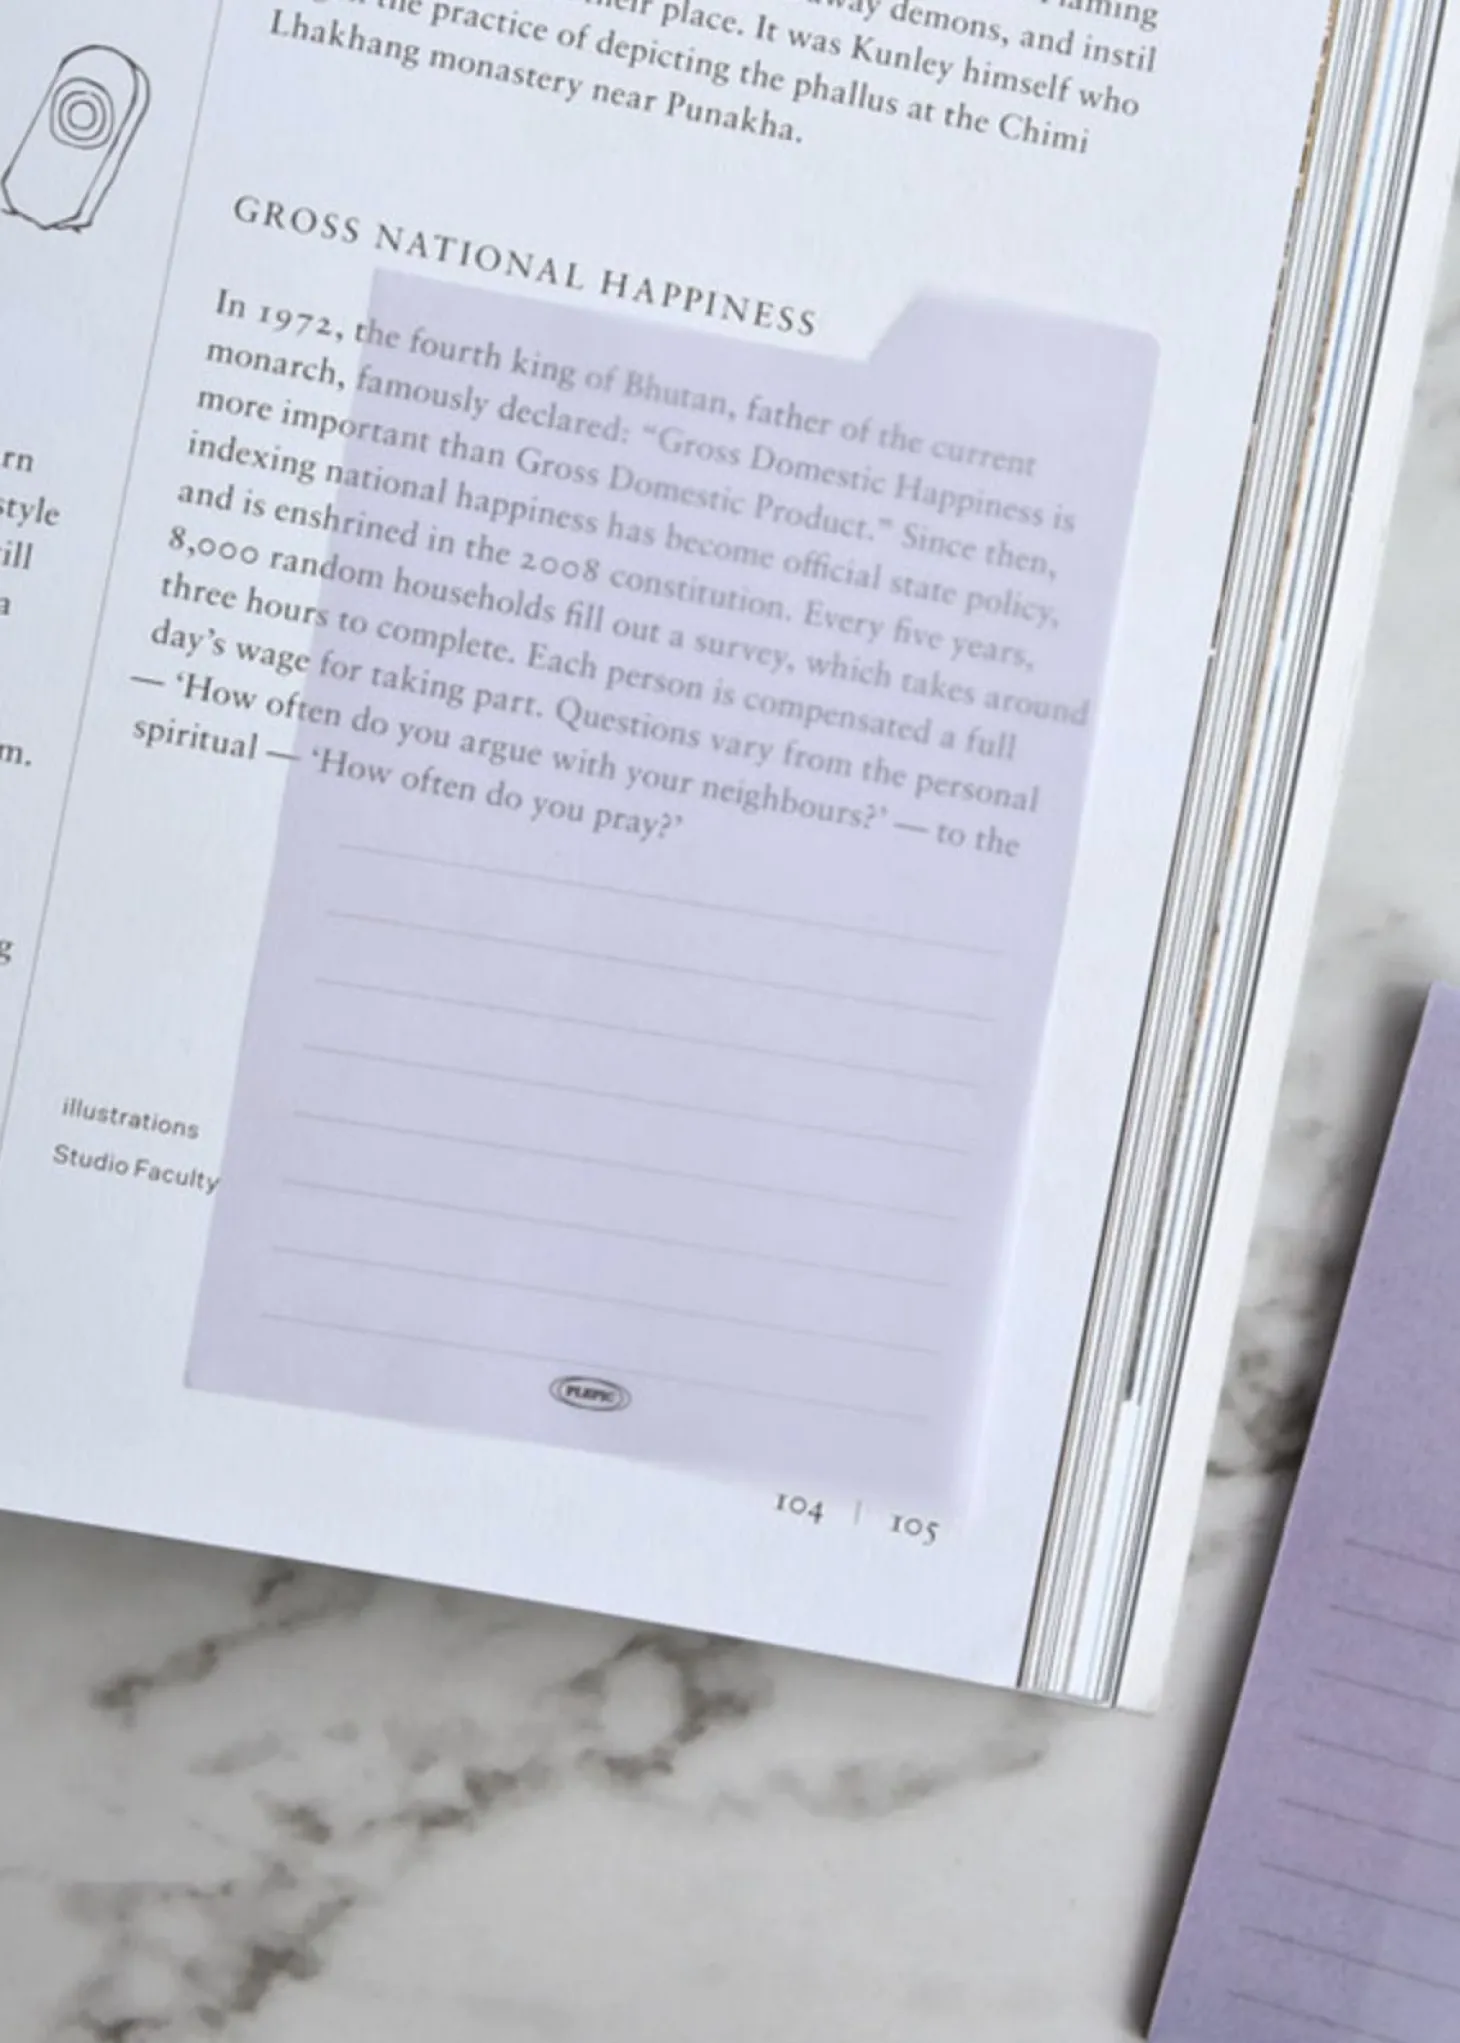 place. It was Kunley himself who
the practice of depicting the phallus at the Chimi
Lhakhang monastery near Punakha.
demons, and instil
GROSS NATIONAL HAPPINESS
In 1972, the fourth king of Bhutan, father of the current
monarch, famously declared: “Gross Domestic Happiness is
more important than Gross Domestic Product.” Since then,
indexing national happiness has become official state policy,
and is enshrined in the 2008 constitution. Every five years,
8,000 random households fill out a survey, which takes around
three hours to complete. Each person is compensated a full
day’s wage for taking part. Questions vary from the personal
— ‘How often do you argue with your neighbours?’ — to the
spiritual — ‘How often do you pray?’
rn
style
ill
a
m.
g
illustrations
Studio Faculty
PLEPIC
104 | 105